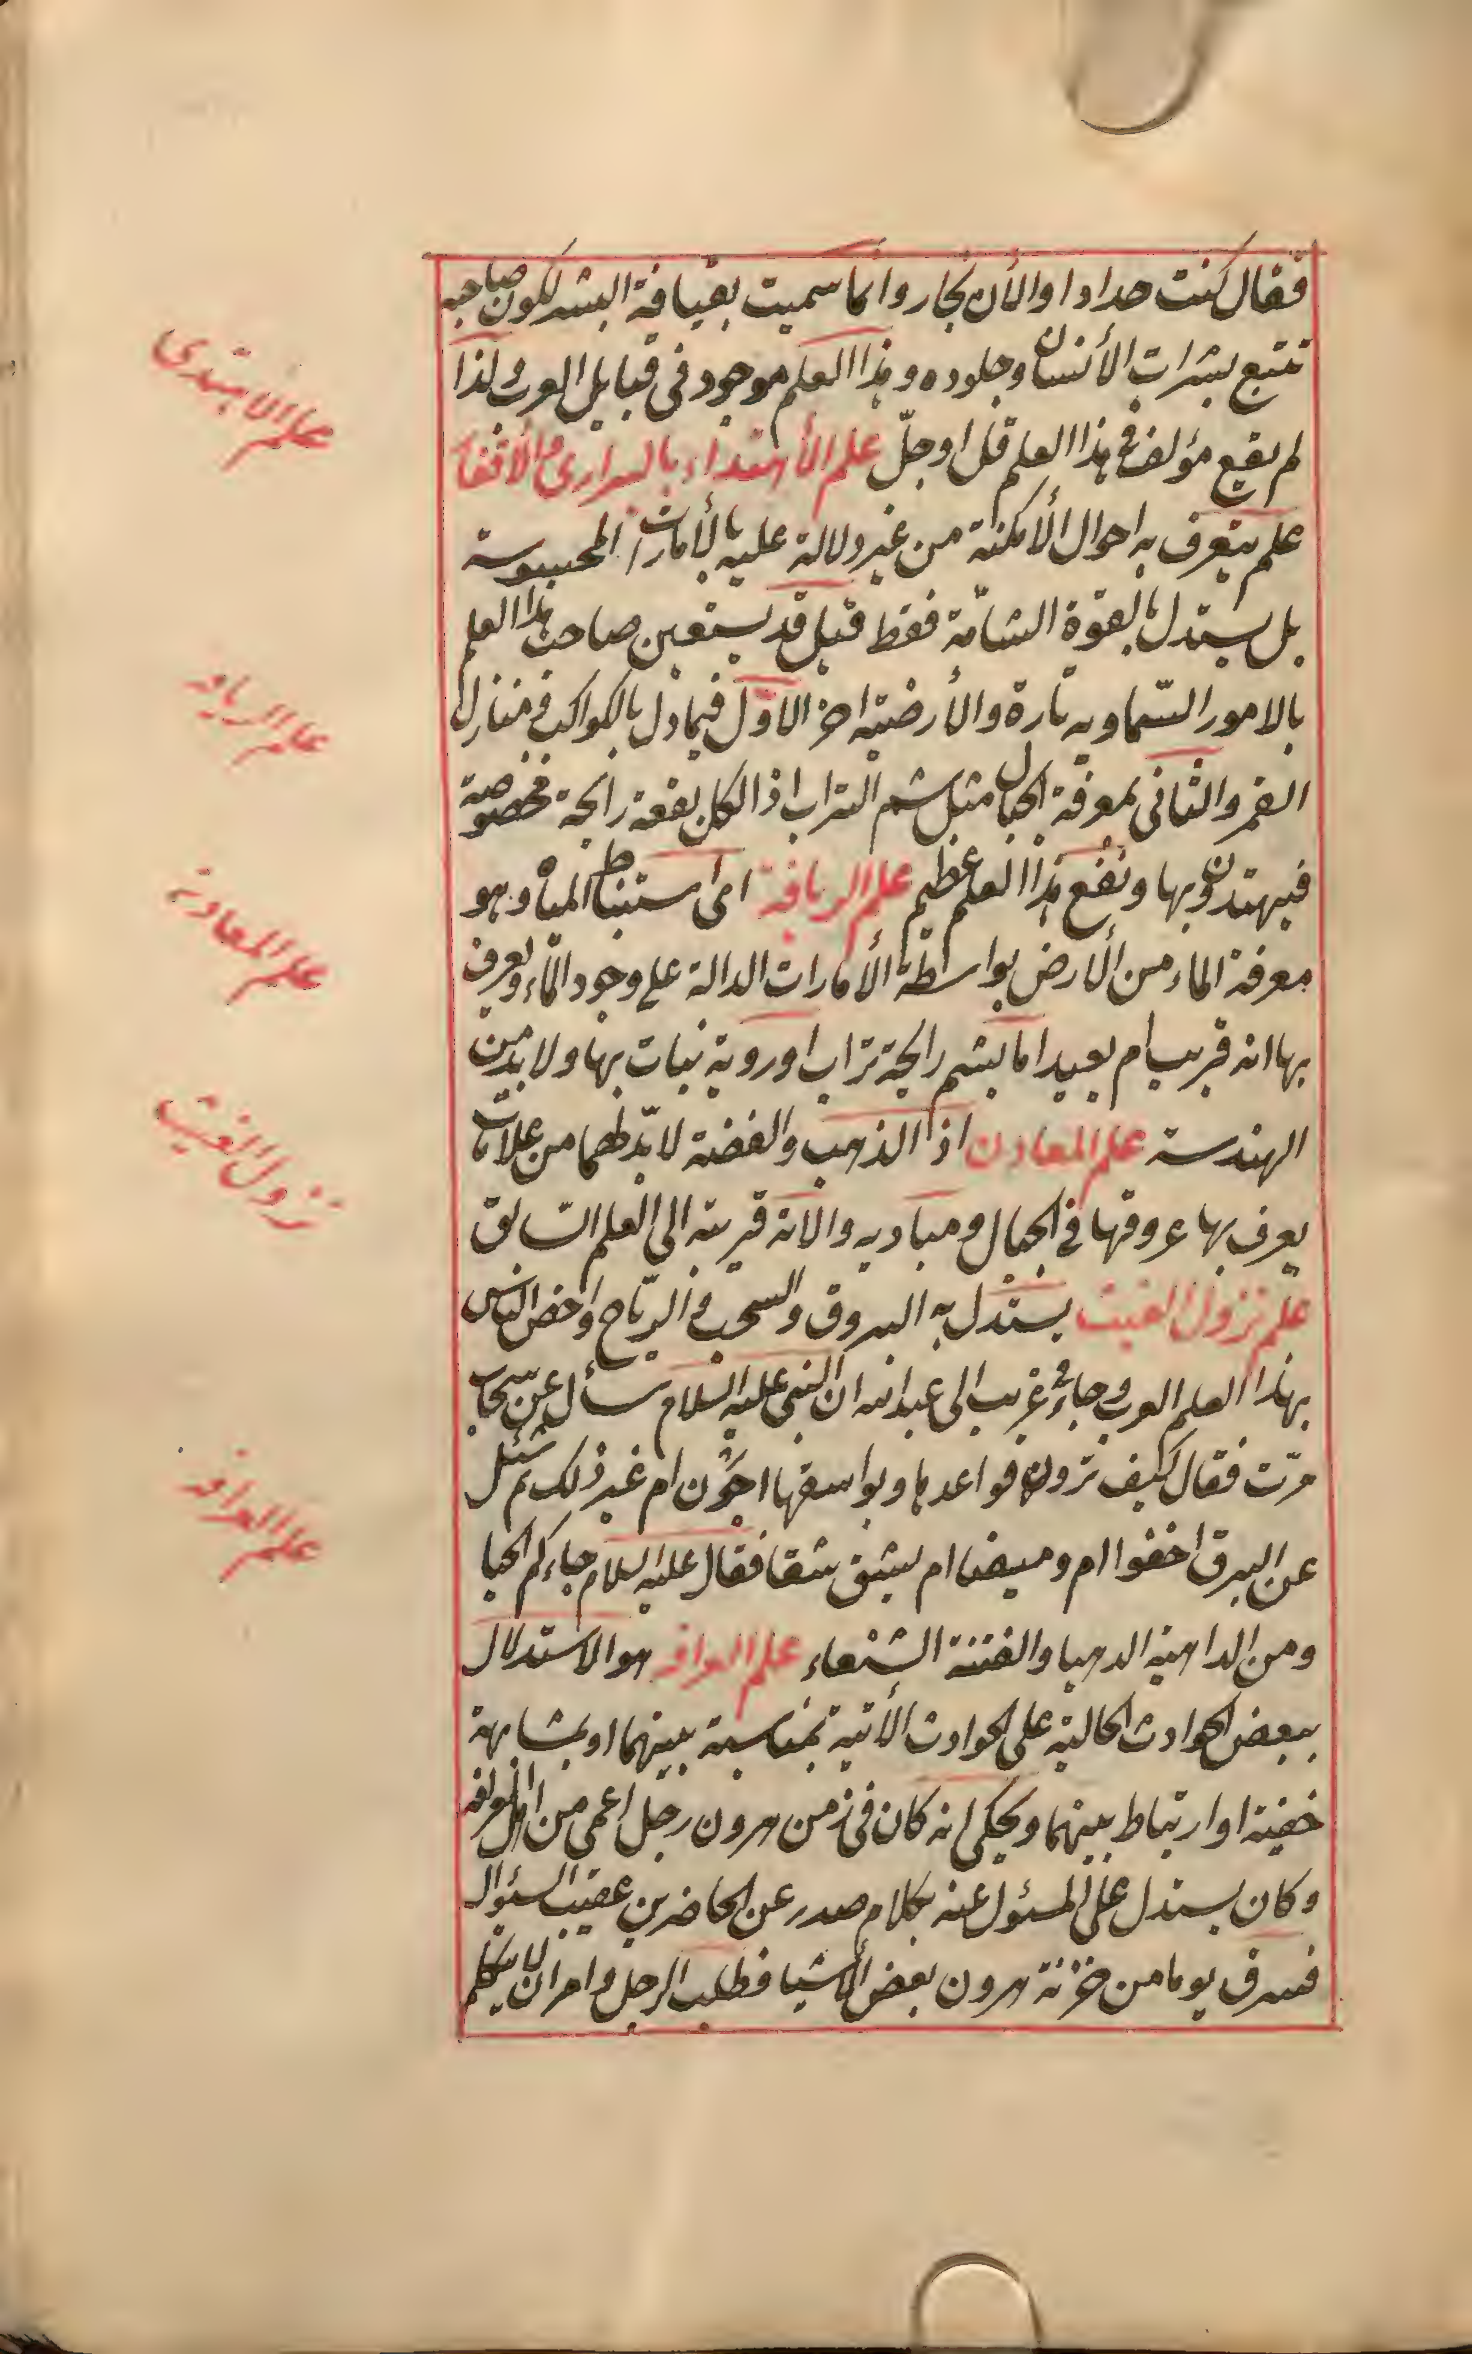 فقال كنت حدادا والأن نجار وانما سميت بقيافة البشر لكون صاحبه
تتبع بشرات الأنسان وجلوده وهذا العلم موجود فى قبايل العرب ولذا
لم يقع مؤلف فى هذا العلم قل او جلّ علم الأهتداء بالبرارى والأقفار
علم يتعرف به احوال الأمكنة من غير دلالة عليه بالأمارات المحسوسة
بل يستدل بالقوة الشامّة فقط قيل قد يستعين صاحب هذا العلم
بالامور السّماويه تارة والأرضيّه اخر الاوّل فيما دل بالكواكب ومنازل
القمر والثانى بمعرفة الجبال مثل شم التراب اذ لكل بقعة رايحة مخصوصة
فيهتدون بها ونفع هذا العلم عظيم علم الريافة اى استنباط المياه وهو
معرفة الماء من الأرض بواسطة الأمارات الدالة على وجود الماء ويعرف
بها انه قريب ام بعيد اما بشم رايحة تراب او روية نبات بها ولا بد من
الهندسة علم المعادن اذ الذهب والفضة لا بدّ لهما من علامات
يعرف بها عروقها فى الجبال ومباديه والاته قريبة الى العلم السّابق
علم نزول الغيث يستدل به البروق والسحب فى الريّاح واخص الناس
بهذا العلم العرب وجاء فى غريب ابى عبد الله ان النبى عليه السلام سأل عن سحاب
مرّت فقال كيف ترون قواعدها وبواسقها اجَوْن ام غير ذلك ثم سُئل
عن البرق اخفوا ام وميضا ام يشق شقا فقال عليه السلام جاءكم الحيا
ومن الداهية الدهيا والفتنة الشنعاء علم العرافه هو الاستدلال
ببعض الحوادث الحالية على الحوادث الأتية بمناسبة بينهما او بمشابهة
خفية او ارتباط بينهما ويحكى انه كان فى زمن هرون رجل اعمى من اهل العرافه
وكان يستدل على المسئول عنه بكلام صدر عن الحاضرين عقيب السئوال
فسرق يوما من خزنة هرون بعض الأشيا فطلب الرجل وامر ان لا يتكلم
علم الاهتدى
علم الريافه
علم المعادن
نزول الغيث
علم العرافه